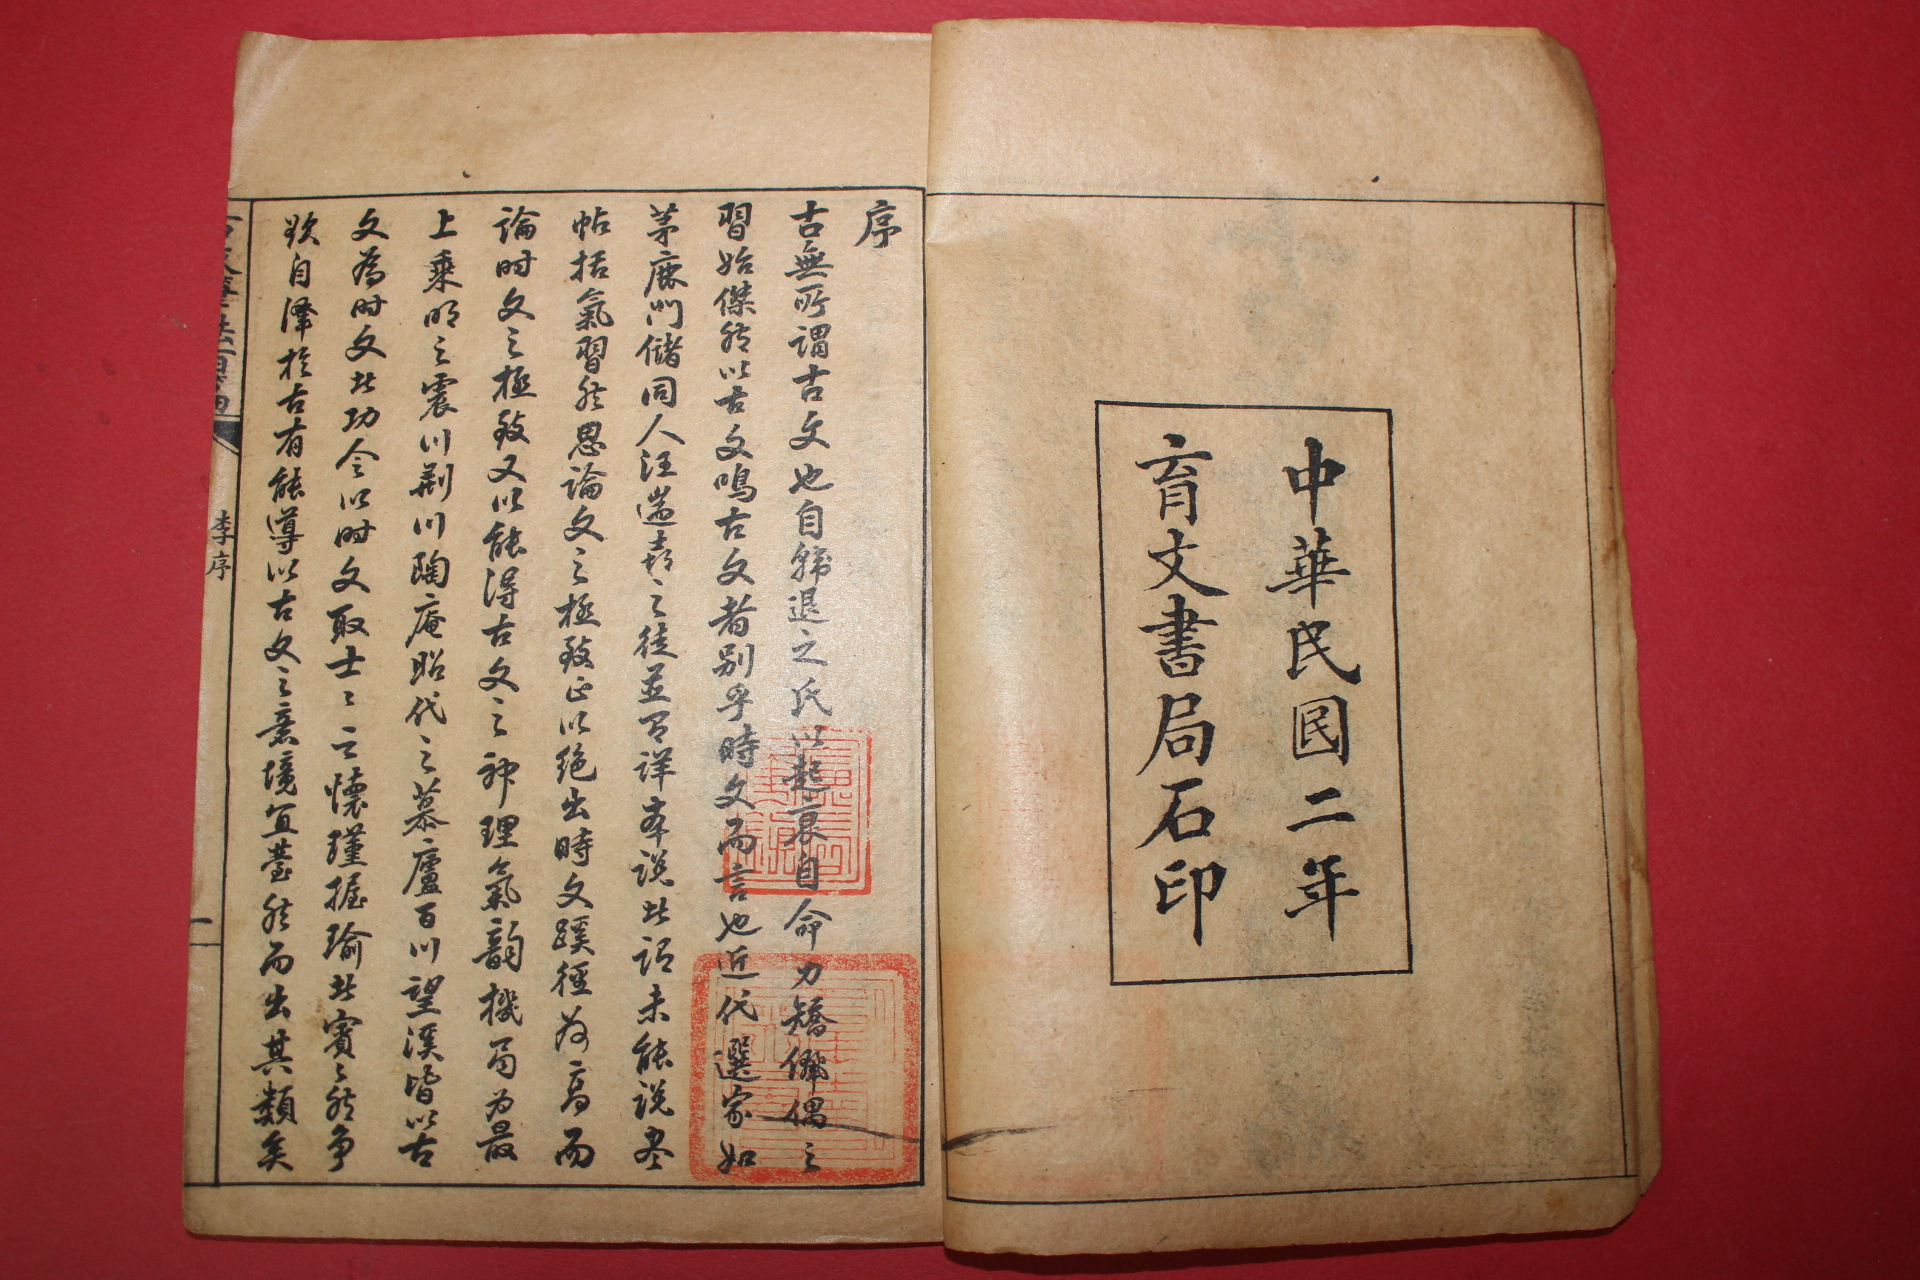 中華民國二年
育文書局石印
序
古無所謂古文也自韓退之氏以起衰自命力矯儷偶之
習始傑然以古文鳴古文者別乎時文而言也近代選家如
茅鹿門儲同人汪遄喜之徒並有詳本說此認未能說盡
帖括氣習然思論文之極致正以絕出時文蹊徑為高而
論時文之極致又以能得古文之神理氣韻機局為最
上乘明之震川荊川陶庵昭代之慕廬百川望溪皆以古
文為時文此功令以時文取士士之懷瑾握瑜此賓賓然爭
欲自澤於古有能導以古文之意境宜蓍然而出其類矣
李序
一